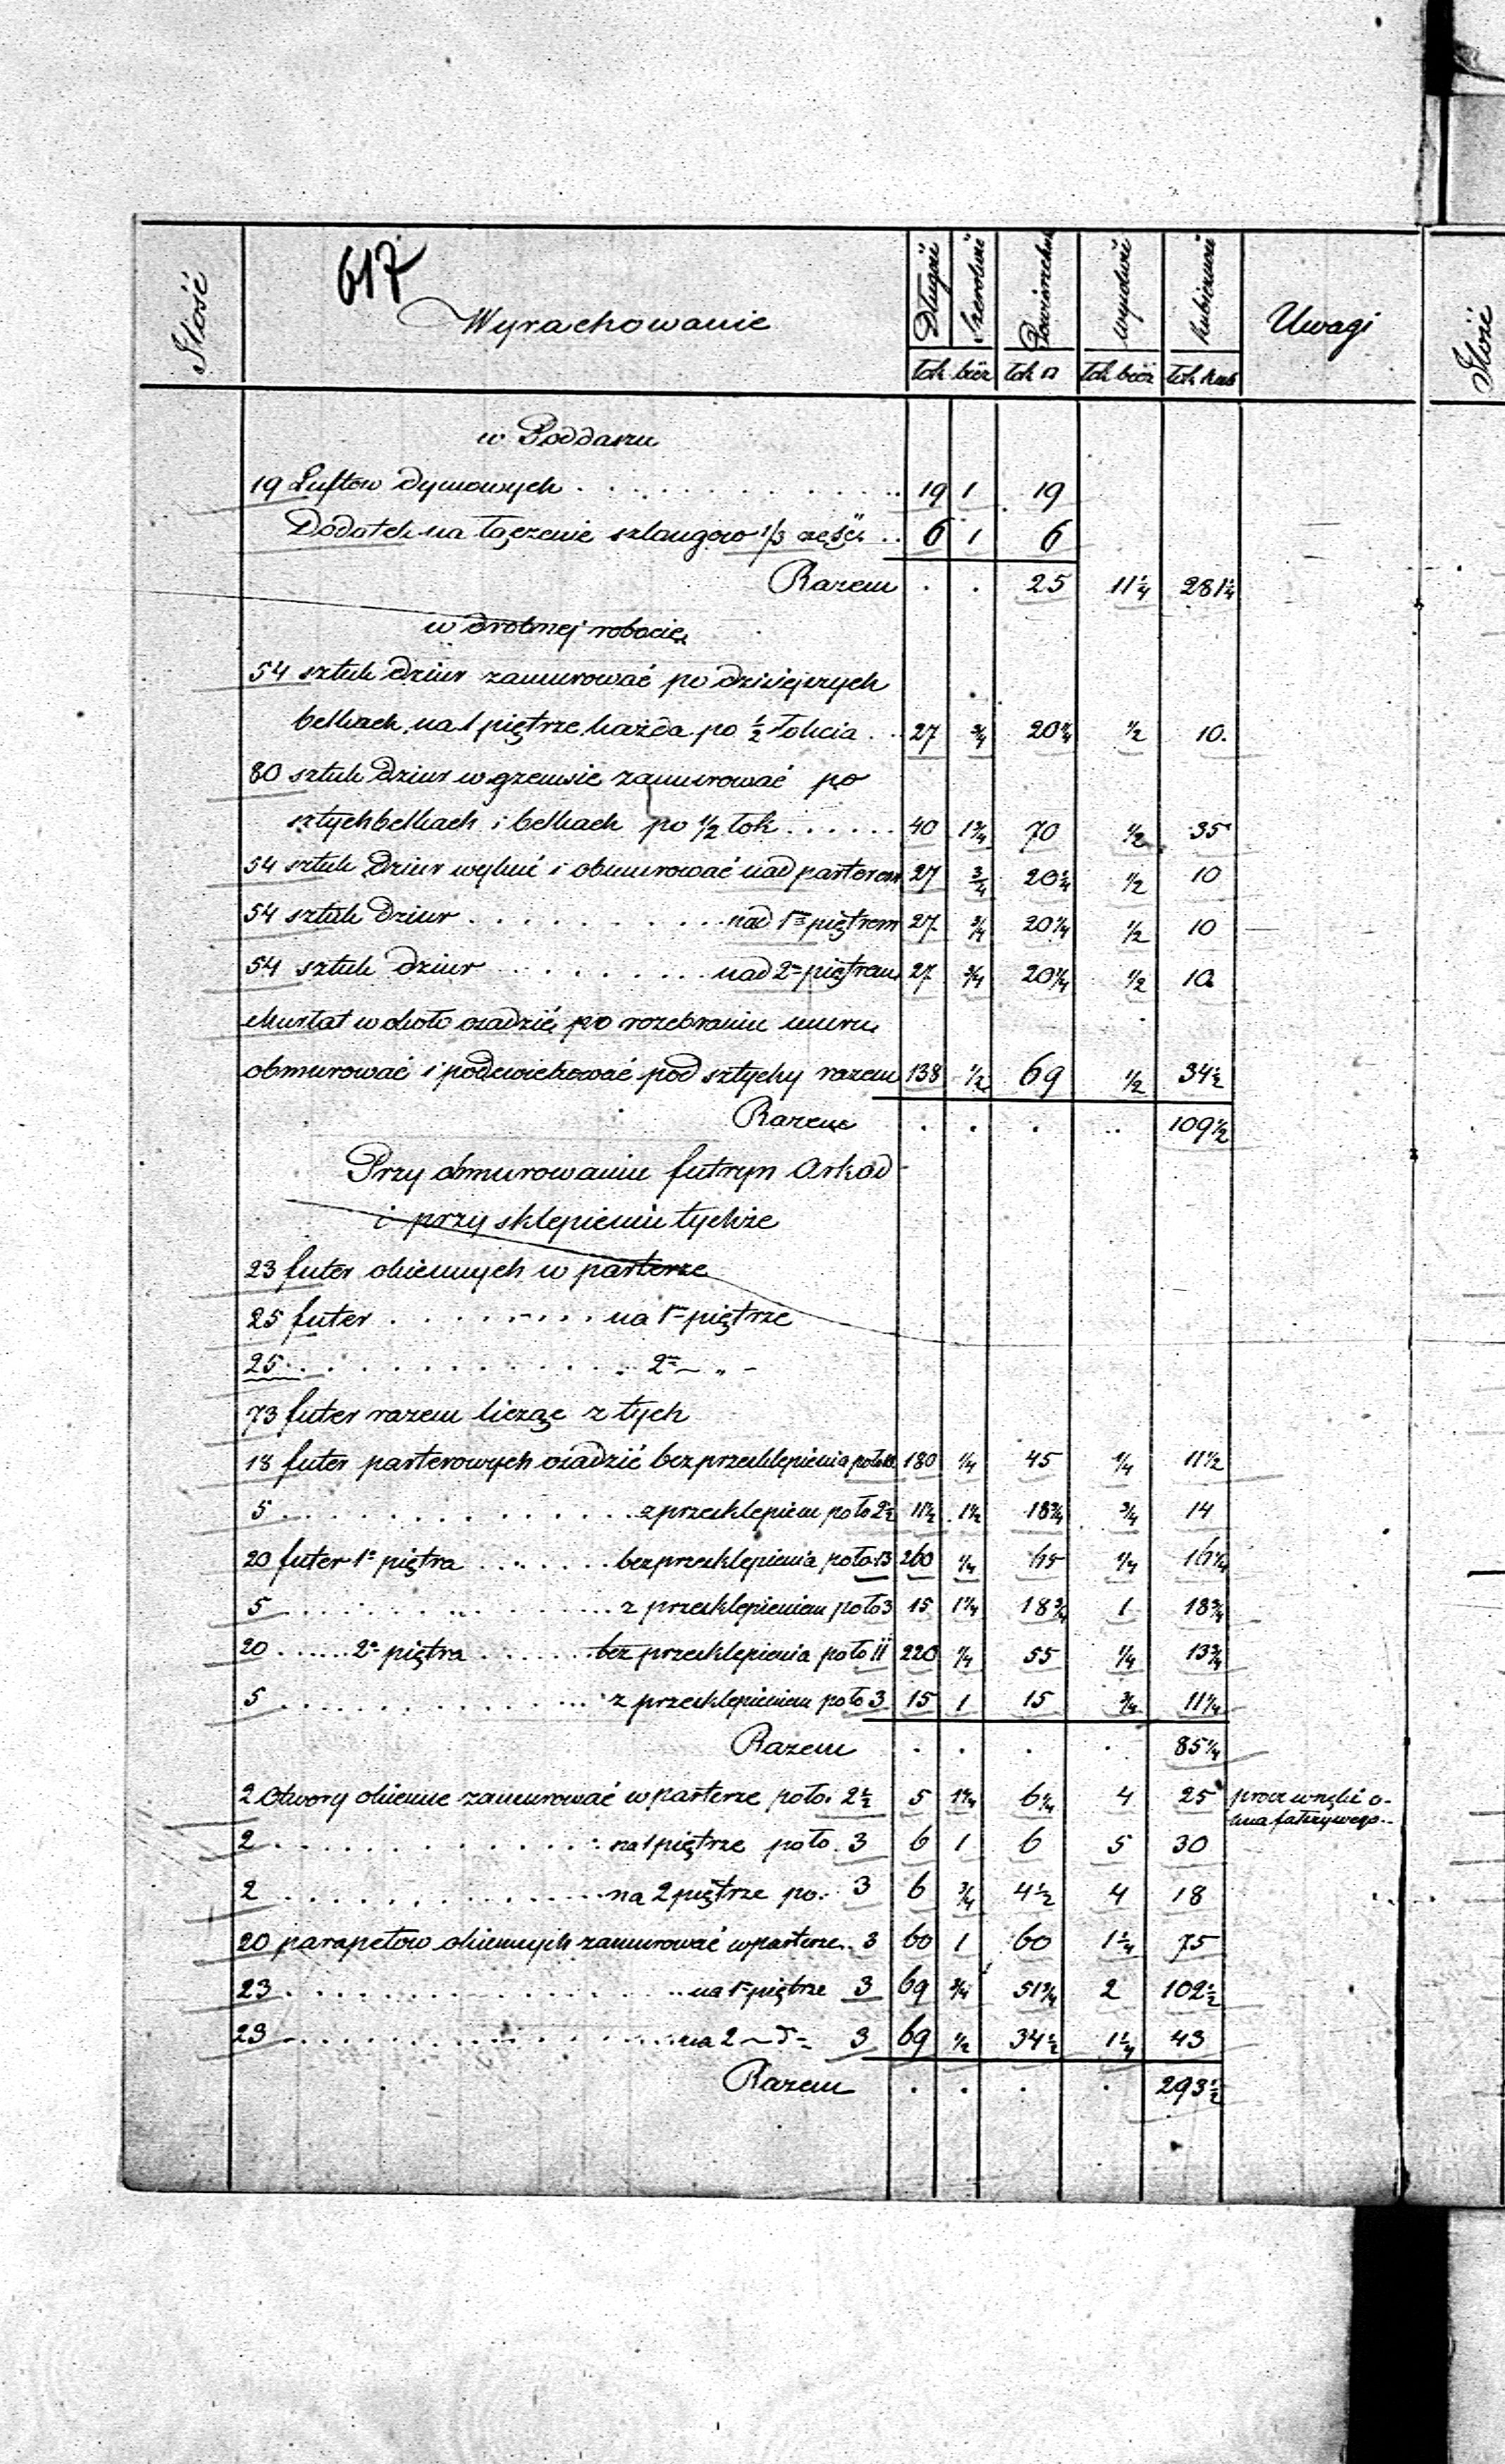 617
Ilość Wyrachowanie Długość Szerokość Powierzchnia wysokość kubiczność Uwagi
łok bież łok □ łok bież łok kub
w Poddaszu
19 Luftów dymowych . . . 19 1 19
Dodatek na łączenie szlangów 1/3 część . . 6 1 6
Razem . . 25 11 1/4 281 1/4
w drobnej robocie
54 sztuk dziur zamurować po dzisiejszych
belkach na 1 piętrze każda po 1/2 łokcia . . 27 3/4 20 1/4 1/2 10.
80 sztuk dziur w gzemsie zamurować po
sztychbelkach i belkach po 1/2 łok . . . 40 1 3/4 70 1/2 35
54 sztuk dziur wykuć i obmurować nad parterem 27 3/4 20 1/4 1/2 10
54 sztuk dziur . . . nad 1m piętrem 27 3/4 20 1/4 1/2 10
54 sztuk dziur . . . nad 2m piętrem 27 3/4 20 1/4 1/2 10
murłat wokoło osadzić po rozebraniu muru
obmurować i podcwiekować pod sztychy razem 138 1/2 69 1/2 34 1/2
Razem . . . . 109 1/2
Przy obmurowaniu futryn Arkad
i przy sklepieniu tychże
23 futer okiennych w parterze
25 futer . . . na 1m piętrze
25 . . . „ 2m — „ —
73 futer razem licząc z tych
18 futer parterowych osadzić bez przesklepienia po ło 10 180 1/4 45 1/4 11 1/2
5 . . . z przesklepiem po ło 2 1/2 11 1/2 1 1/2 18 3/4 3/4 14
20 futer 1o piętra . . . bez przesklepienia po ło 13 260 1/4 65 1/4 16 1/4
5 . . . z przesklepieniem po ło 3 15 1 1/4 18 3/4 1 18 3/4
20 . . . 2o piętra . . . bez przesklepienia po ło 11 220 1/4 55 1/4 13 3/4
5 . . . z przesklepieniem po ło 3 15 1 15 3/4 11 1/4
Razem . . . . 85 1/4
2 Otwory okienne zamurować w parterze po ło. 2 1/2 5 1 1/4 6 1/4 4 25 procz wnęki o-
kna fałszywego . .
2 . . . na 1 piętrze po ło. 3 6 1 6 5 30
2 . . . na 2 piętrze po. 3 6 3/4 4 1/2 4 18
20 parapetow okiennych zamurować w parterze . 3 60 1 60 1 1/4 75
23 . . . na 1m piętrze 3 69 3/4 51 3/4 2 102 1/2
23 . . . na 2 — d— 3 69 1/2 34 1/2 1 1/4 43
Razem . . . . 293 1/2
Ilość